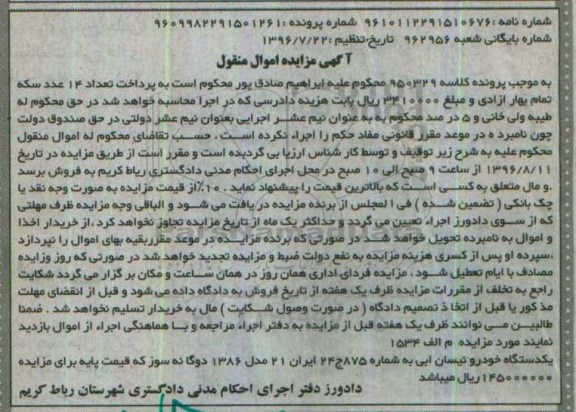 شماره نامه :۹۶۱۰۱۱۲۲۹۱۵۱۰۶۷۶ شماره پرونده :۹۶۰۹۹۸۲۲۹۱۵۰۱۲۶۱
شماره بایگانی شعبه ۹۶۲۹۵۶ تاریخ تنظیم :۱۳۹۶/۷/۲۲
آگهی مزایده اموال منقول
به موجب پرونده کلاسه ۹۵۰۳۲۹ محکوم علیه ابراهیم صادق پور محکوم است به پرداخت تعداد ۱۴ عدد سکه
تمام بهار ازادی و مبلغ ۳۴۱۰۰۰۰ ریال بابت هزینه دادرسی که در اجرا محاسبه خواهد شد در حق محکوم له
طیبه ولی خانی و ۵ در صد محکوم به به عنوان نیم عشر اجرایی بعنوان نیم عشر دولتی در حق صندوق دولت
چون نامبرد ه در موعد مقرر قانونی مفاد حکم را اجراء نکرده است . حسب تقاضای محکوم له اموال منقول
محکوم علیه به شرح زیر توقیف و توسط کار شناس ارزیا بی گردیده است و مقرر است از طریق مزایده در تاریخ
۱۳۹۶/۸/۱۱ از ساعت ۹ صبح الی ۱۰ صبح در محل اجرای احکام مدنی دادگستری رباط کریم به فروش برسد
.و مال متعلق به کسی است که بالاترین قیمت را پیشنهاد نماید .۱۰٪از قیمت مزایده به صورت وجه نقد یا
چک بانکی ( تضمین شده ) فی ا لمجلس از برنده مزایده در یافت می شود و الباقی وجه مزایده ظرف مهلتی
که از سوی دادورز اجراء تعیین می گردد و حداکثر یک ماه از تاریخ مزایده تجاوز نخواهد کرد .از خریدار اخذا
و اموال به نامبرده تحویل خواهد شد در صورتی که برنده مزایده در موعد مقرربقیه بهای اموال را نپردازد
،سپرده او پس از کسری هزینه مزایده به نفع دولت ضبط و مزایده تجدید خواهد شد در صورتی که روز وزایده
مصادف با ایام تعطیل شود ، مزایده فردای اداری همان روز در همان ساعت و مکان بر گزار می گردد شکایت
راجع به تخلف از مقررات مزایده ظرف یک هفته از تاریخ فروش به دادگاه داده می شود و قبل از انقضای مهلت
مذ کور یا قبل از اتخا ذ تصمیم دادگاه ( در صورت وصول شکایت ) مال به خریدار تسلیم نخواهد شد . ضمنا
طالبین می توانند ظرف یک هفته قبل از مزایده به دفتر اجراء مراجعه و با هماهنگی اجراء از اموال بازدید
نمایند مورد مزایده م الف ۱۵۳۴
یکدستگاه خودرو نیسان ابی به شماره ۸۷۵ج۲۴ ایران ۲۱ مدل ۱۳۸۶ دوگا نه سوز که قیمت پایه برای مزایده
۱۴۵۰۰۰۰۰۰ریال میباشد
دادورز دفتر اجرای احکام مدنی دادگستری شهرستان رباط کریم